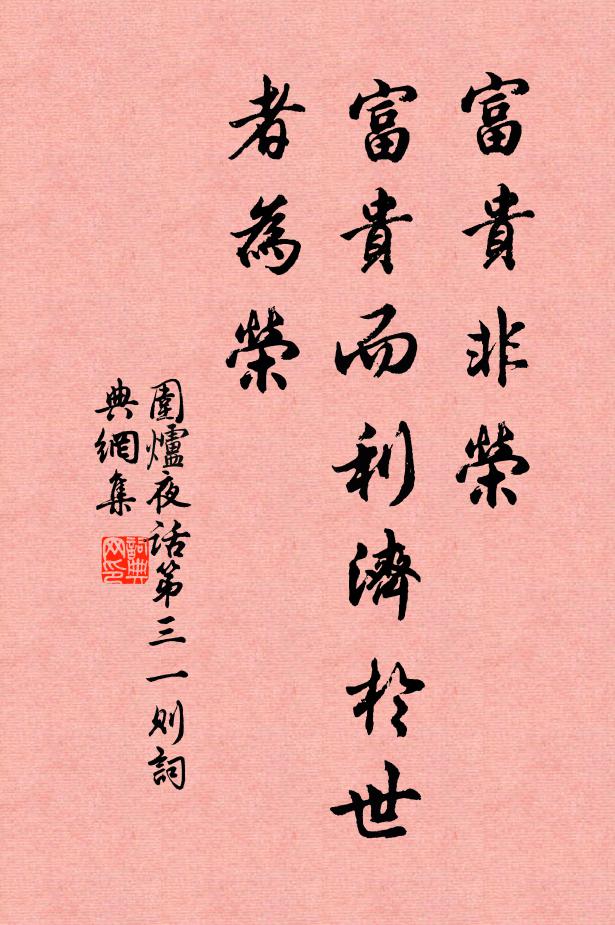 富貴非榮
富貴而利濟於世
者為榮
圍爐夜話第三一则詞
典網集
詞典
网印